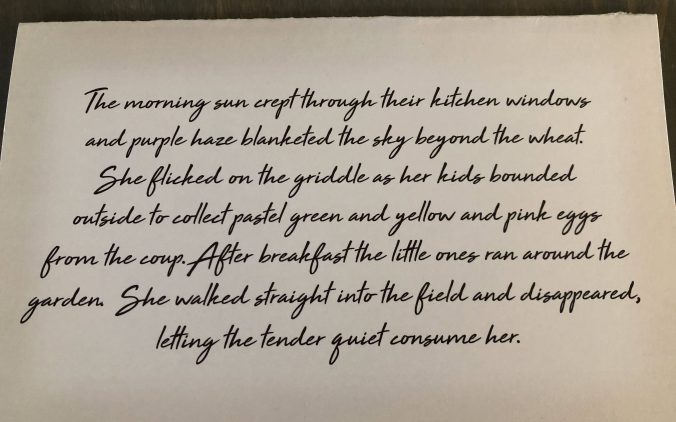 The morning sun crept through their kitchen windows
and purple haze blanketed the sky beyond the wheat.
She flicked on the griddle as her kids bounded
outside to collect pastel green and yellow and pink eggs
from the coup. After breakfast the little ones ran around the
garden. She walked straight into the field and disappeared,
letting the tender quiet consume her.